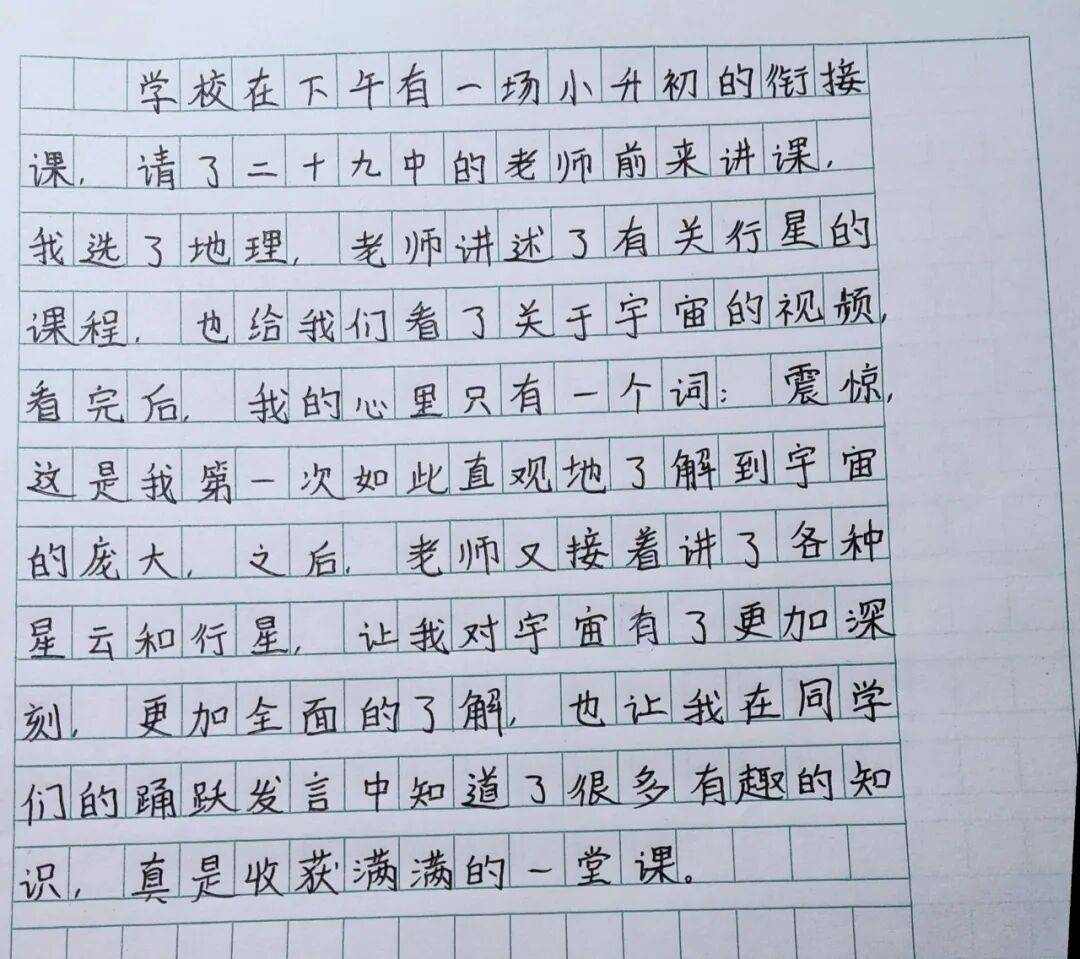 学校在下午有一场小升初的衔接
课，请了二十九中的老师前来讲课，
我选了地理，老师讲述了有关行星的
课程，也给我们看了关于宇宙的视频，
看完后，我的心里只有一个词：震惊，
这是我第一次如此直观地了解到宇宙
的庞大，之后，老师又接着讲了各种
星云和行星，让我对宇宙有了更加深
刻，更加全面的了解，也让我在同学
们的踊跃发言中知道了很多有趣的知
识，真是收获满满的一堂课。